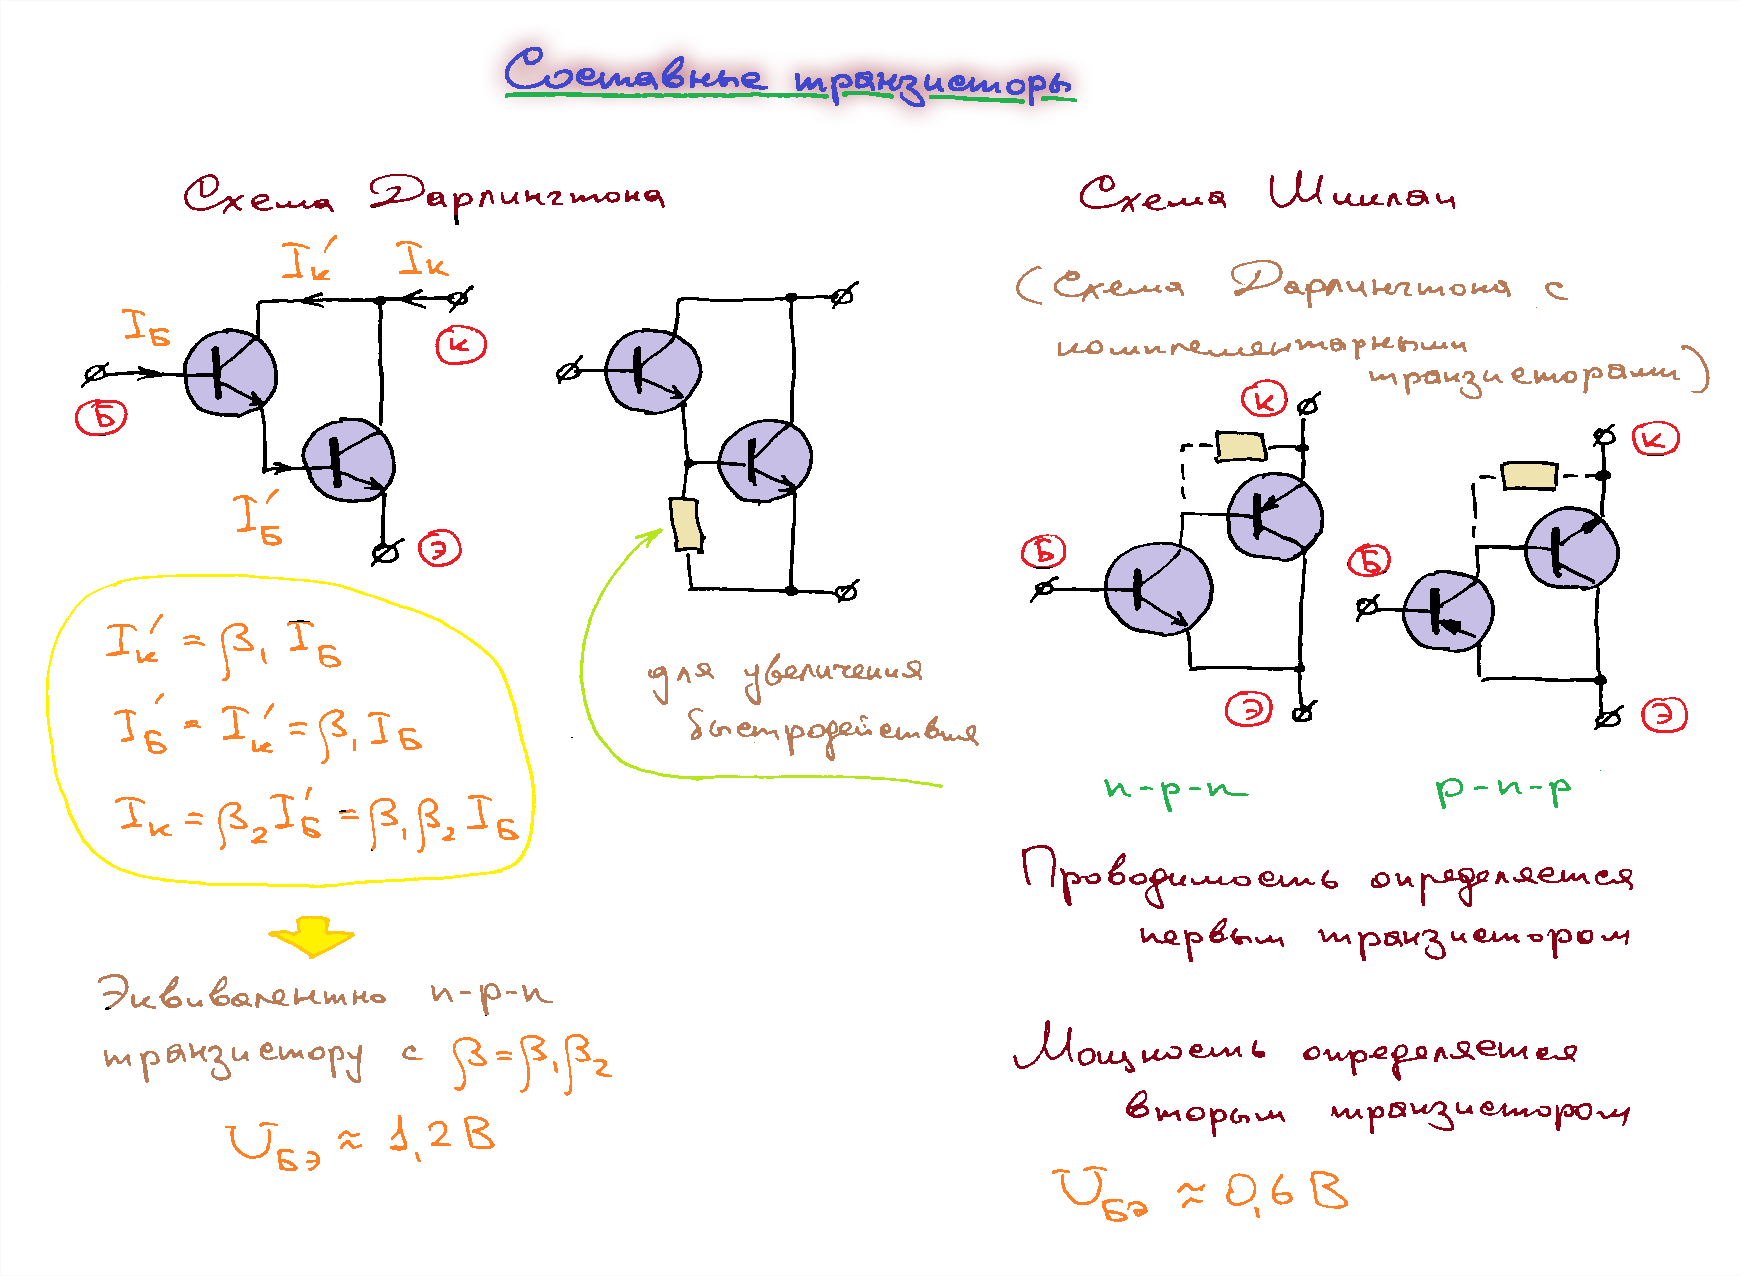 Составные транзисторы
Схема Дарлингтона
I'к Iк
IБ
К
Б
I'Б
Э
I'к = β₁ IБ
I'Б = I'к = β₁ IБ
Iк = β₂ I'Б = β₁ β₂ IБ
Эквивалентно n-p-n
транзистору с β = β₁ β₂
UБЭ ≈ 1,2 В
для увеличения
быстродействия
Схема Шиклаи
(Схема Дарлингтона с
комплементарными
транзисторами)
К
Б
Э
n-p-n
К
Б
Э
p-n-p
Проводимость определяется
первым транзистором
Мощность определяется
вторым транзистором
UБЭ ≈ 0,6 В